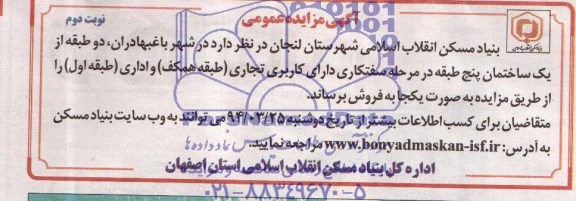 آگهی مزایده عمومی
نوبت دوم
بنیاد مسکن انقلاب اسلامی شهرستان لنجان در نظر دارد در شهر باغبهادران، دو طبقه از
یک ساختمان پنج طبقه در مرحله سفتکاری دارای کاربری تجاری (طبقه همکف) و اداری (طبقه اول) را
از طریق مزایده به صورت یکجا به فروش برساند.
متقاضیان برای کسب اطلاعات بیشتر از تاریخ دوشنبه ۹۴/۰۳/۲۵ می توانند به وب سایت بنیاد مسکن
به آدرس: www.bonyadmaskan-isf.ir مراجعه نمایید.
اداره کل بنیاد مسکن انقلاب اسلامی استان اصفهان
۰۲۱-۸۸۳۴۹۶۷۰-۵